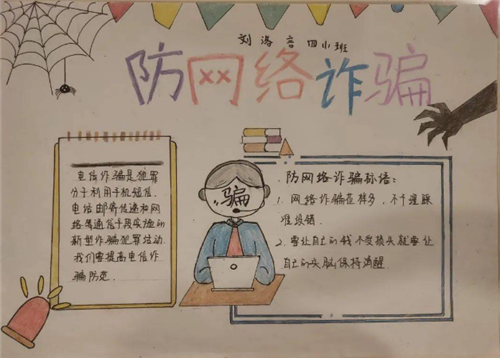 刘洛言 四小班
防网络诈骗
电信诈骗是犯罪
分子利用手机短信,
电话邮等传递和网
络等通信手段实施的
新型诈骗犯罪活动.
我们要提高电信诈
骗防范.
骗
防网络诈骗标语:
1. 网络诈骗花样多,不予理睬
准没错.
2. 要让自己的钱不受损失就要让
自己的头脑保持清醒